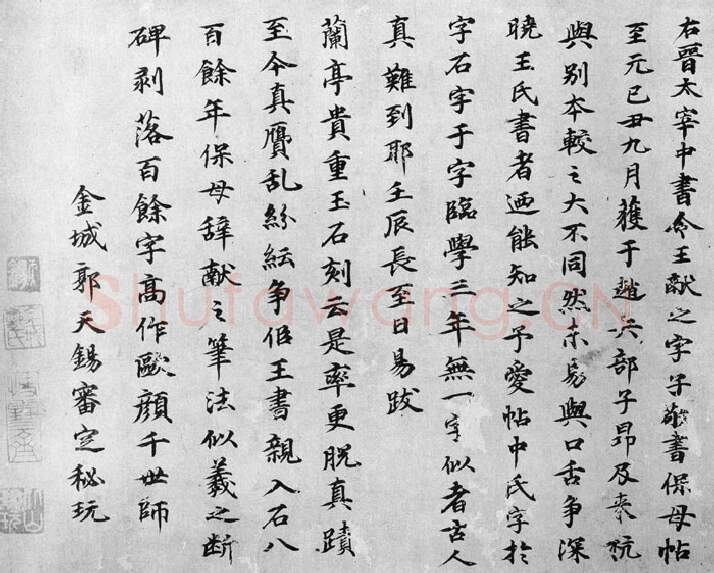 右晉太宰中書令王獻之字子敬書保母帖
至元己丑九月獲于趙兵部子昂及來杭
與別本較之大不同然未易與口舌爭深
曉王氏書者廼能知之予愛帖中氏字於
字石字于字臨學三年無一字似者古人
真難到耶壬辰長至日易跋
蘭亭貴重玉石刻云是率更脫真蹟
至今真贗乱紛紜争佀王書親入石八
百餘年保母辞献之筆法似羲之断
碑剥落百餘字高作歐顔千世師
金城郭天錫審定秘玩
Shufawang.CN